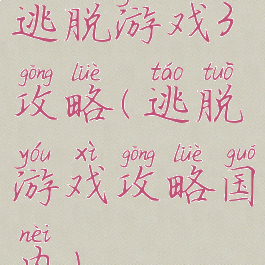 逃脱游戏3
gōng lüè táo tuō
攻略(逃脱
yóu xì gōng lüè guó
游戏攻略国
nèi
内)